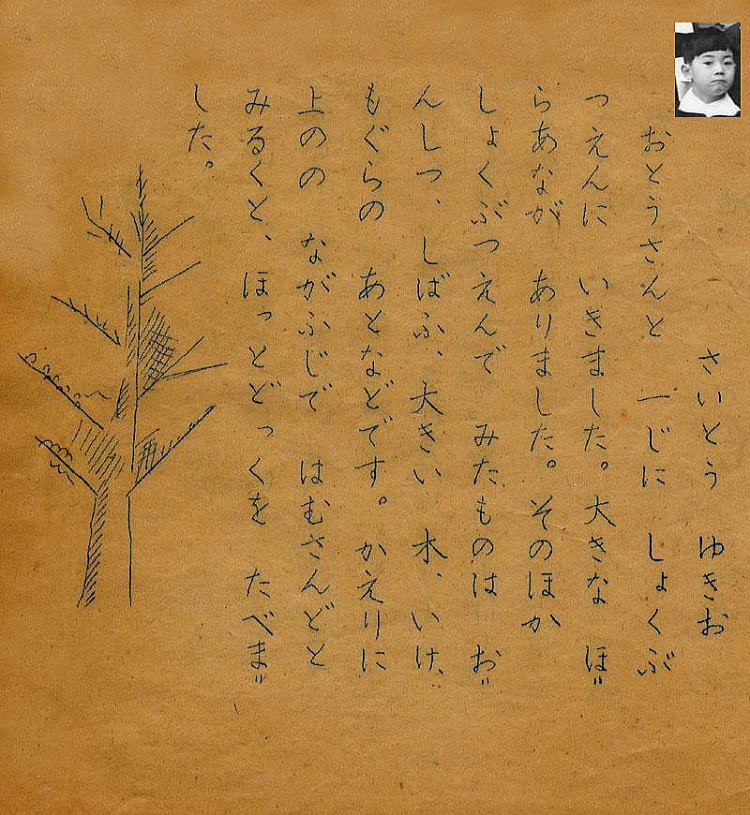 さいとう ゆきお
おとうさんと 一じに しょくぶ
つえんに いきました。大きな ほ〃
らあなが ありました。そのほか
しょくぶつえんで みたものは お〃
んしつ、しばふ、大きい 木、いけ、〃
もぐらの あとなどです。かえりに
上のの ながふじで はむさんどと
みるくと、ほっとどっくを たべま〃
した。